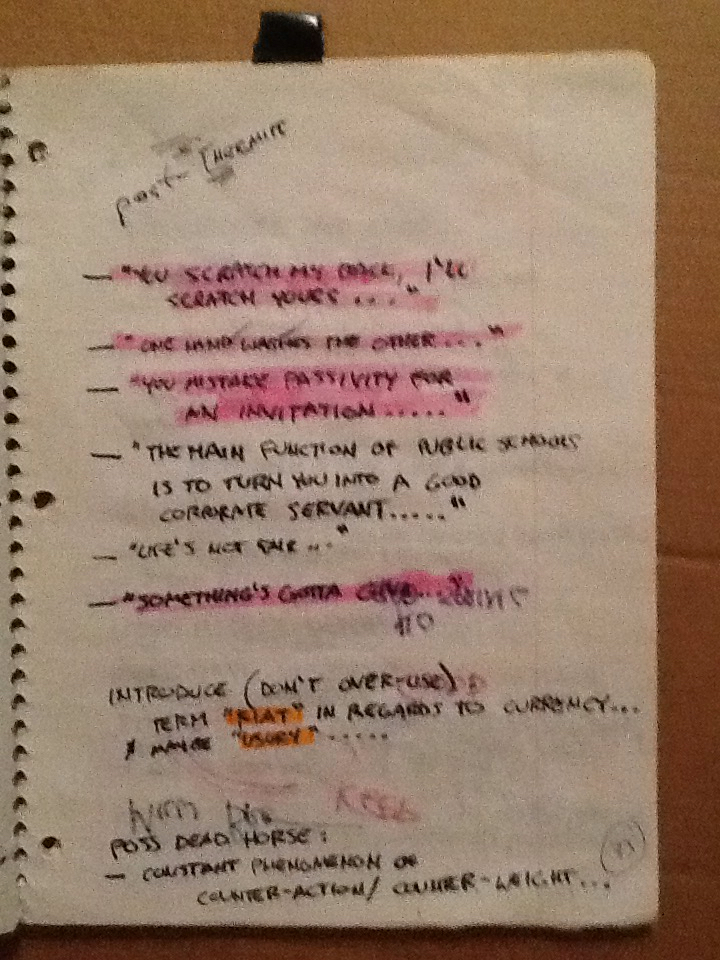 post-Thermite
— "YOU SCRATCH MY BACK, I'LL
SCRATCH YOURS ...."
— "ONE HAND WASHES THE OTHER...."
— "YOU MISTAKE PASSIVITY FOR
AN INVITATION....."
— "THE MAIN FUNCTION OF PUBLIC SCHOOLS
IS TO TURN YOU INTO A GOOD
CORPORATE SERVANT....."
— "LIFE'S NOT FAIR ..."
— "SOMETHING'S GOTTA GIVE..."
INTRODUCE (DON'T OVER-USE)
TERM "FIAT" IN REGARDS TO CURRENCY...
& MAYBE "USURY" .....
POSS DEAD HORSE:
— CONSTANT PHENOMENON OF
COUNTER-ACTION/ COUNTER-WEIGHT...